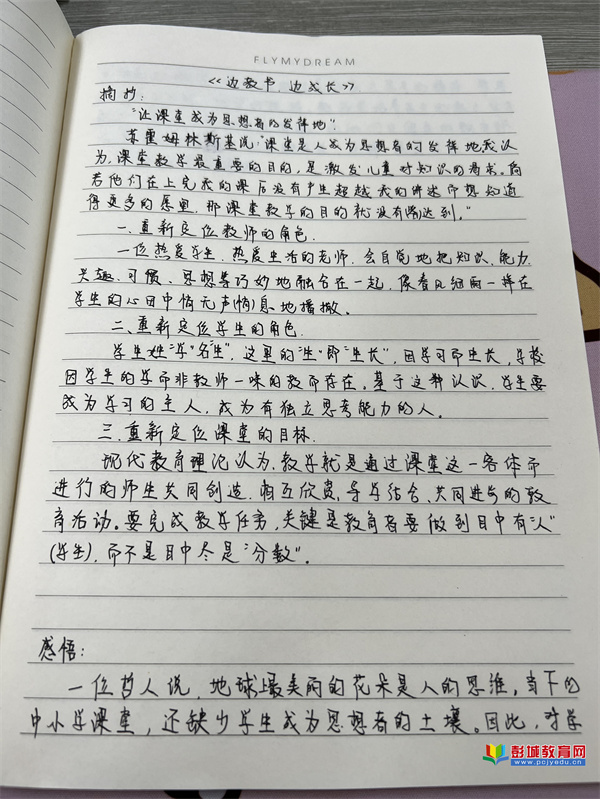 FLYMYDREAM
《边教书 边成长》
摘抄:
"让课堂成为思想者的发祥地".
苏霍姆林斯基说:"课堂是人成为思想者的发祥地.我认
为,课堂教学最重要的目的,是激发儿童对知识的渴求.倘
若他们在上完我的课后没有产生超越我的讲述而想知道
得更多的愿望,那课堂教学的目的就没有达到."
一.重新定位教师的角色.
一位热爱学生.热爱生活的老师.会自觉地把知识.能力.
兴趣.习惯.思想等巧妙地融合在一起,像春风细雨一样在
学生的心田中悄无声(悄)息地播撒.
二.重新定位学生的角色.
学生姓"学"名"生".这里的"生"即"生长",因学习而生长,学校
因学生的学而非教师一味的教而存在.基于这种认识,学生要
成为学习的主人,成为有独立思考能力的人.
三.重新定位课堂的目标.
现代教育理论认为,教学就是通过课堂这一客体而
进行的师生共同创造.相互欣赏,导学结合.共同进步的教
育活动。要完成教学任务,关键是教育者要做到目中有"人"
(学生).而不是目中尽是"分数".
感悟:
一位哲人说,地球上最美丽的花朵是人的思维,当下的
中小学课堂,还缺少学生成为思想者的土壤。因此,对学
彭城教育网
www.pcjyedu.cn